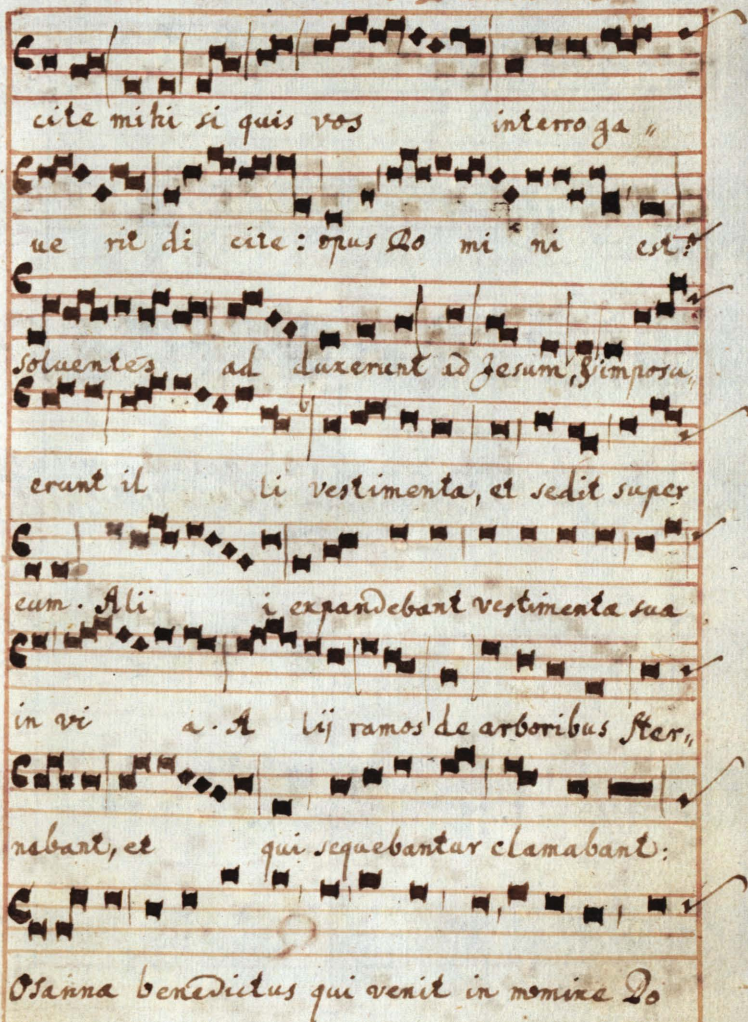 cite mihi si quis vos interroga„
ue rit di cite: opus Do mi ni est:
soluentes ad duxerunt ad Jesum, & imposu„
erunt il li vestimenta, et sedit super
eum. Alii i expandebant vestimenta sua
in vi a. A lij ramos de arboribus ster„
nabant, et qui sequebantur clamabant:
Osanna benedictus qui venit in nomine Do